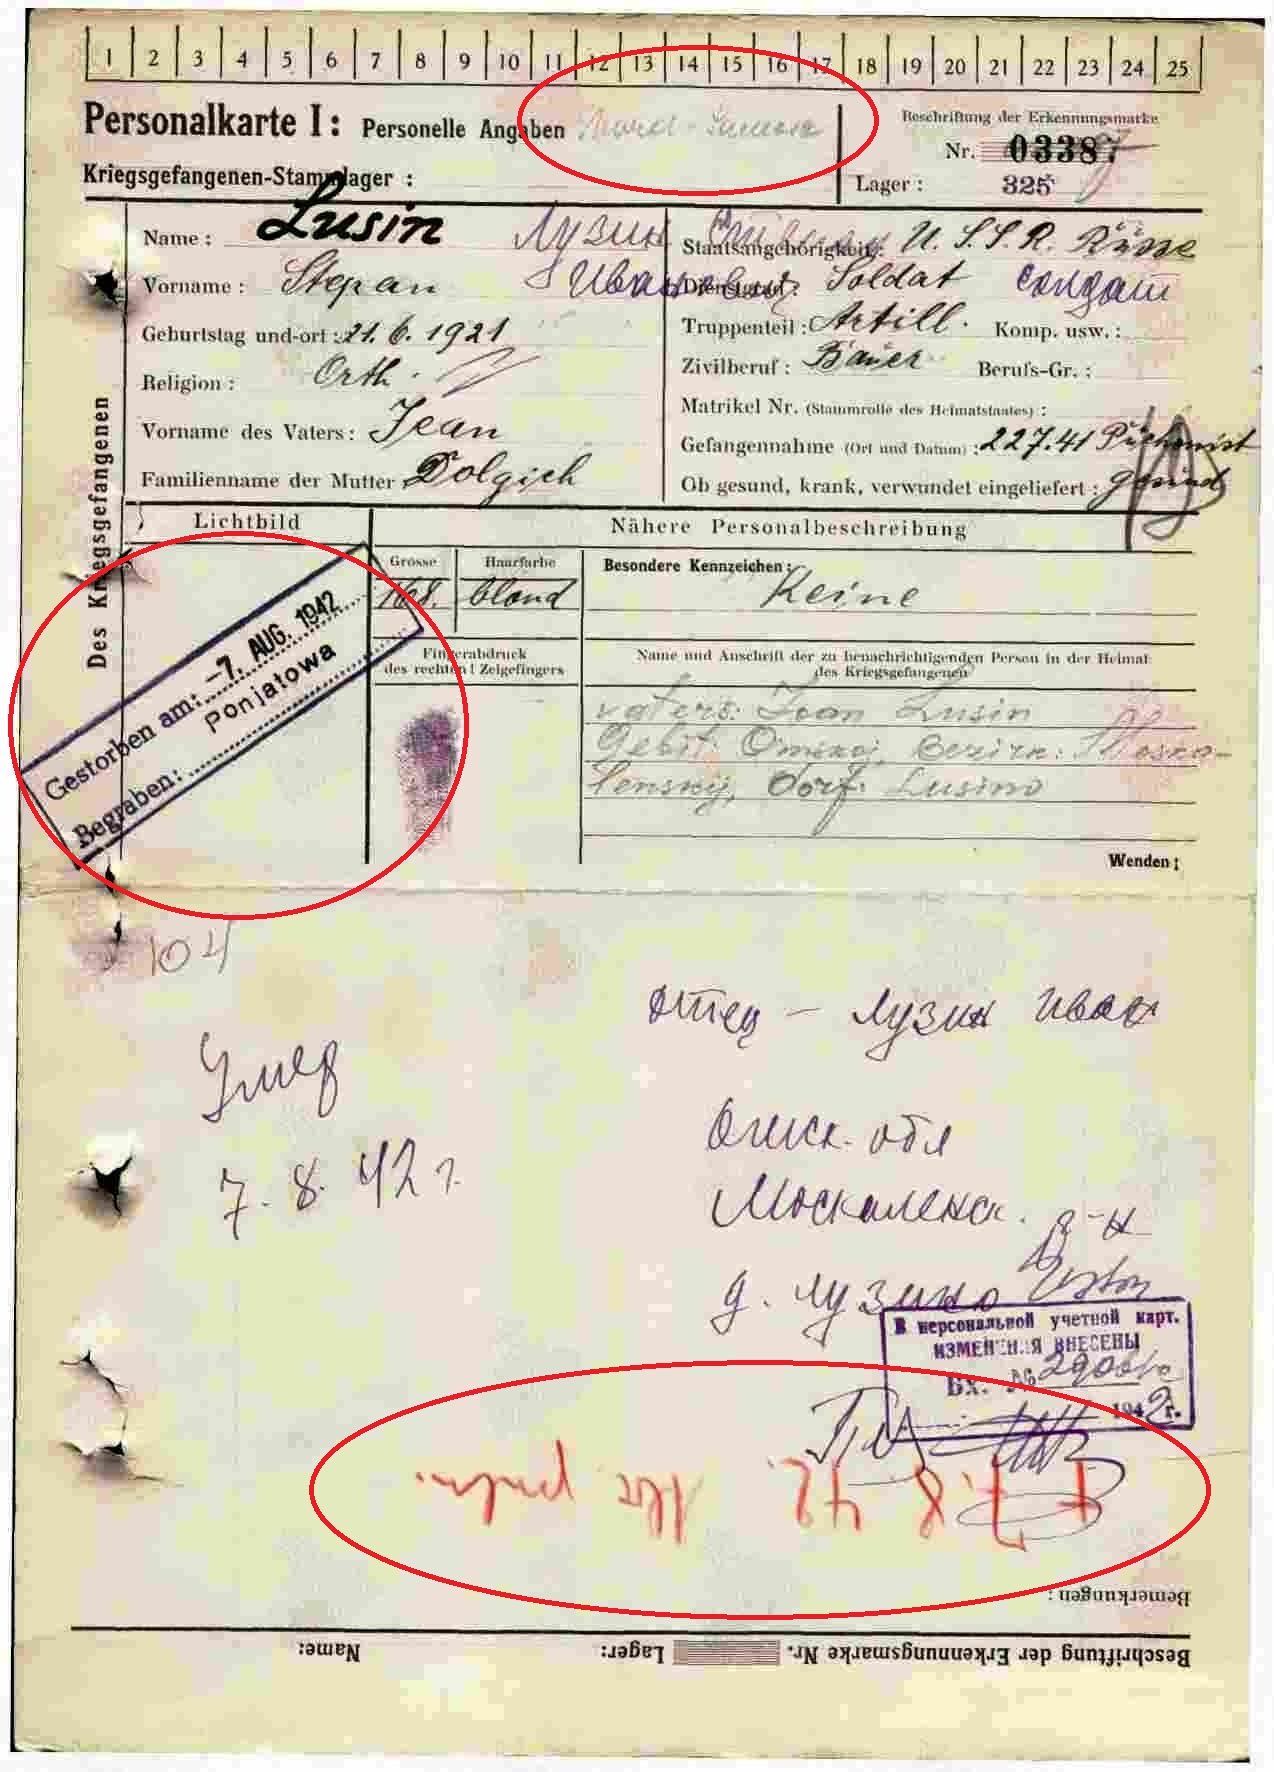 1 2 3 4 5 6 7 8 9 10 11 12 13 14 15 16 17 18 19 20 21 22 23 24 25
Personalkarte I: Personelle Angaben
Beschriftung der Erkennungsmarke
Nr. 03387
Kriegsgefangenen-Stammlager :
Lager : 325
Des Kriegsgefangenen
Name : Lusin Лузин
Vorname : Stepan Иванович
Geburtstag und-ort : 21. 6. 1921
Religion : Orth.
Vorname des Vaters : Iean
Familienname der Mutter : Dolgich
Staatsangehörigkeit : U. S. S. R. Rüsse
Dienstgrad : Soldat солдат
Truppenteil : Artill. Komp. usw. :
Zivilberuf : Bauer Berufs-Gr. :
Matrikel Nr. (Stammrolle des Heimatstaates) :
Gefangennahme (Ort und Datum) : 227.41
Ob gesund, krank, verwundet eingeliefert : gesund
Lichtbild
Nähere Personalbeschreibung
Grosse
168.
Haarfarbe
blond
Besondere Kennzeichen :
Keine
Gestorben am: -7. AUG. 1942
Ponjatowa
Begraben:
Fingerabdruck
des rechten ! Zeigefingers
Name und Anschrift der zu benachrichtigenden Person in der Heimat
des Kriegsgefangenen
vaters: Ioan Lusin
Gebit: Omskoj, Bezirk: Moska-
lenskij, Dorf: Lusino
Wenden !
104
отец – Лузин Иван
Умер
7. 8. 42 г.
Омск. обл
Москаленск. р-н
д. Лузино
В персональной учетной карт.
ИЗМЕНЕНИЯ ВНЕСЕНЫ
Вх. №
1942 г.
7. 8. 42.
Bemerkungen :
Beschriftung der Erkennungsmarke Nr. Lager: Name: